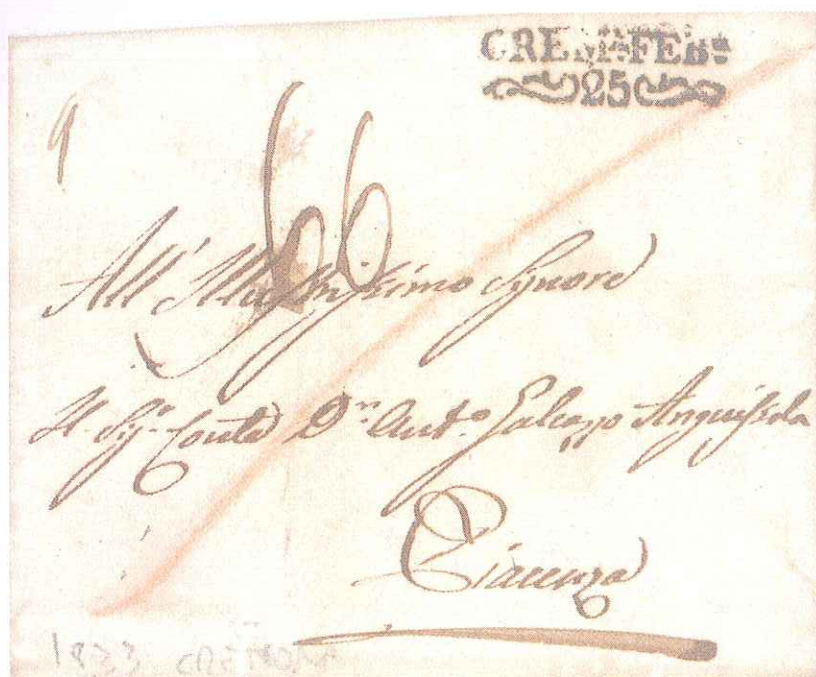 CREMA FEB.
25
9
66
All' Illustrissimo Signore
Il Sigr. Conte Dn. Anto. Galeazzo Anguissola
Piacenza
1833 CREMONA